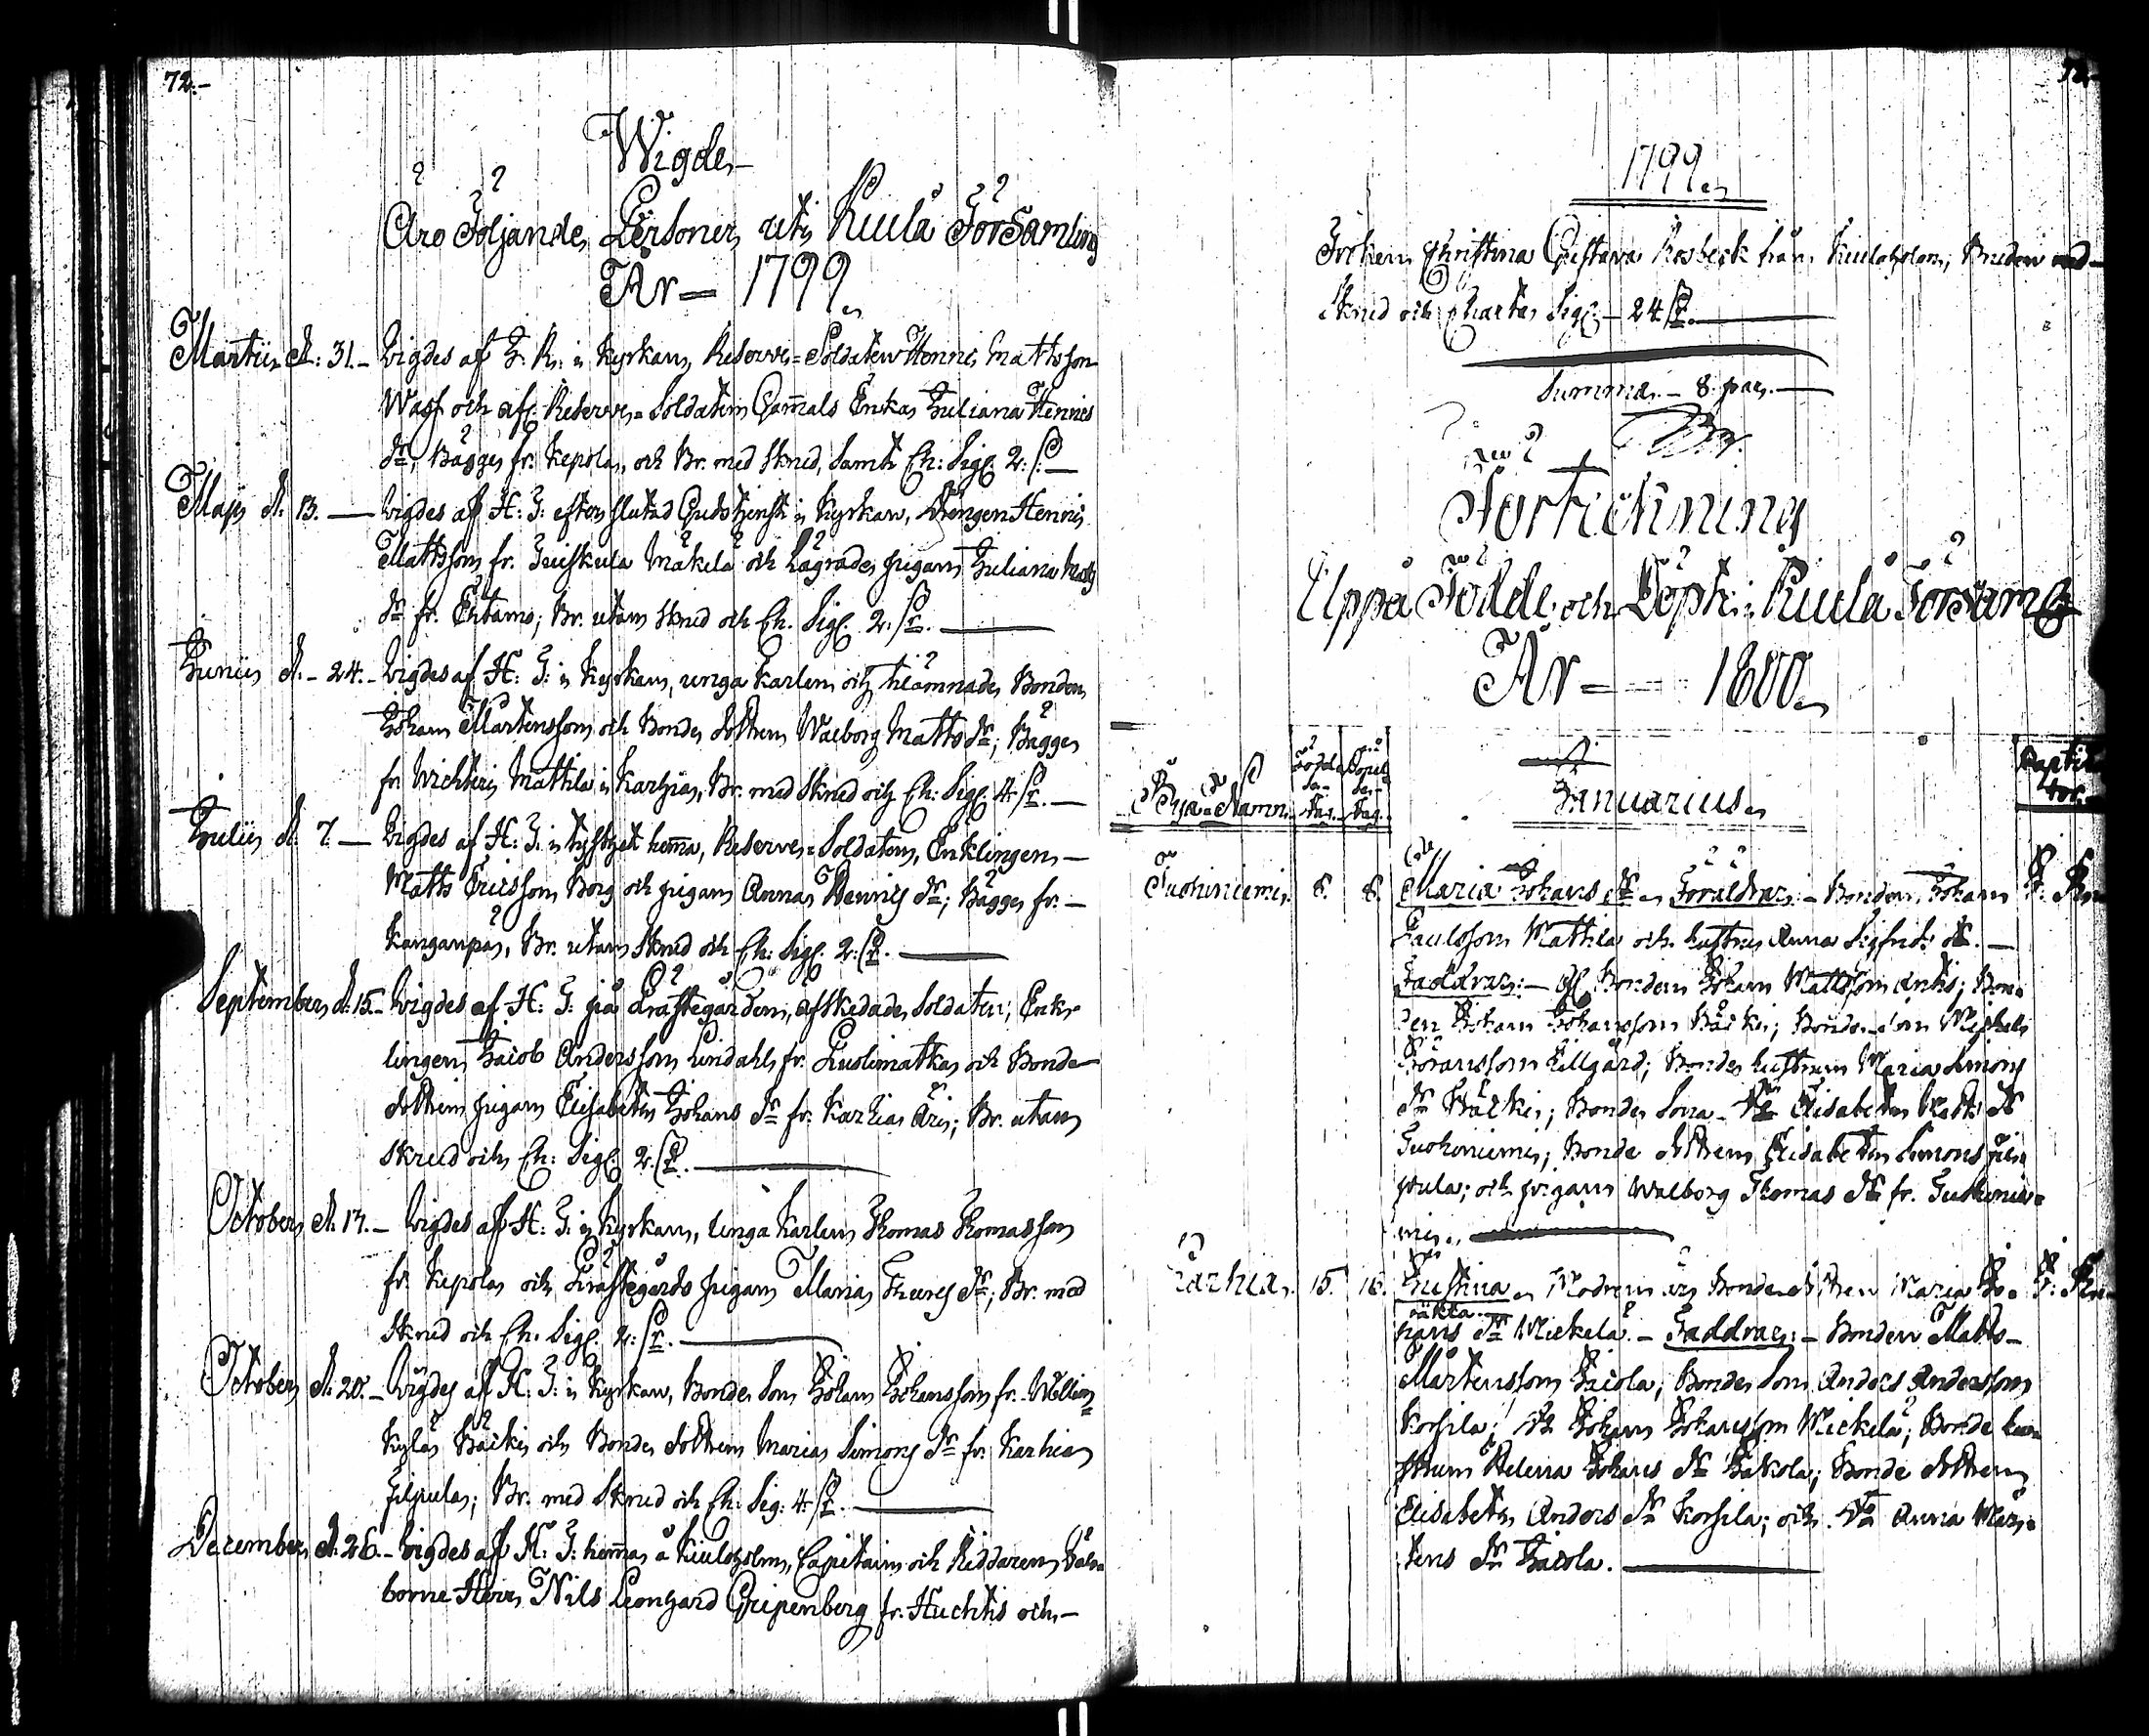 72.
Wigde
Äro Följande Personer uti Kiula Församling
År = 1799.
Martii d. 31. Wigdes af i Kyrkan, Reserve=Soldaten Henric Mattsson
Wass och afl. Reserve=Soldaten Gam̄als Enka Juliana Henrics
dr, Bägge fr. Kepola, och Br. med skrud, samt Ch: Sigl. 2. s.
Maji d. 13. Wigdes af H: G: efter slutad Gudstjenst i Kyrkan, Drengen Henric
Mattsson fr. Mäkelä och Lägrade pigan Juliana Matts
dr fr. Ehtamo; Br. utan skrud och Ch. Sigl. 2. s.
Junii d. 24. Wigdes af H: G: i Kyrkan, unga Karlen och Bonden
Johan Mårtensson och Bonde dottren Walborg Matts dr; Bägge
fr. Wichteri Mattila i Karhia, Br. med skrud och Ch: Sigl. 4. s.
Julii d. 7. Wigdes af H: G: i hem̄a, Reserve=Soldaten, Enklingen
Matts Ericsson Borg och pigan Anna Henrics dr; Bägge fr.
Kanganpä, Br. utan skrud och Ch: Sigl. 2. s.
September d. 15. Wigdes af H: G: på Prästegården, afskedade Soldaten, Enk-
lingen Jacob Andersson Lindahl fr. och Bonde
dottren pigan Elisabeth Johans dr fr. Karhia Äri; Br. utan
skrud och Ch: Sigl. 2. s.
October d. 17. Wigdes af H: G: i Kyrkan, unga Karlen Thomas Thomasson
fr. Kepola och Prästegårds pigan Maria dr; Br. med
skrud och Ch. Sigl. 2. s.
October d. 20. Wigdes af H: G: i Kyrkan, Bonde Son Johan Johansson fr. Willian=
kylä Bäcki och Bonde dottren Maria Simons dr fr. Karhia
Filpula; Br. med skrud och Ch. Sig. 4. s.
December d. 26. Wigdes af H: G: hem̄a å Kiuloholm, Capitain och Riddaren Wäl-
borne Herr Nils Leonhard Gripenberg fr. Huchtis och
1799.
Fröken Christina Gustava Rosbeck från Kiuloholm, Bruden med
skrud och Charta Sigl. 24 s.
Summa. 8. par.
Förtekning
Uppå Födde och Döpte i Kiula Församl.
År = 1800.
Bya=Namn. Födel se- dag. Döpel se- dag. Januarius.
Tuohiniemi. 8. 8. Maria Johans dr. Föräldrar: Bonden Johan
Paulsson Mattila och hustru Anna Sigfrids dr.
Faddrar: Bonden Johan Mattsson Antti; Bon-
den Johan Johansson Bäcki; Bonde son Michel
Göransson Killgård; Bonde hustrun Maria Simons
dr Bäcki; Bonde Elisabeth Matts dr
Tuohiniemi; Bonde dottren Elisabeth Simons Fil-
pula; och pigan Walborg Thomas dr fr. Tuohinie=
mi.
Karhia. 15. 16. Justina. Modren är Bonde dottren Maria Jo-
oäkta.
hans dr Mickelä. Faddrar: Bonden Matts
Mårtensson Jacola; Bonde Son Anders Andersson
Korsila; Johan Johansson Mickelä; Bonde hu-
strun Helena Johans dr Jakola; Bonde dottren
Elisabeth Anders dr Korsila; och Anna Mår-
tens dr Jacola.